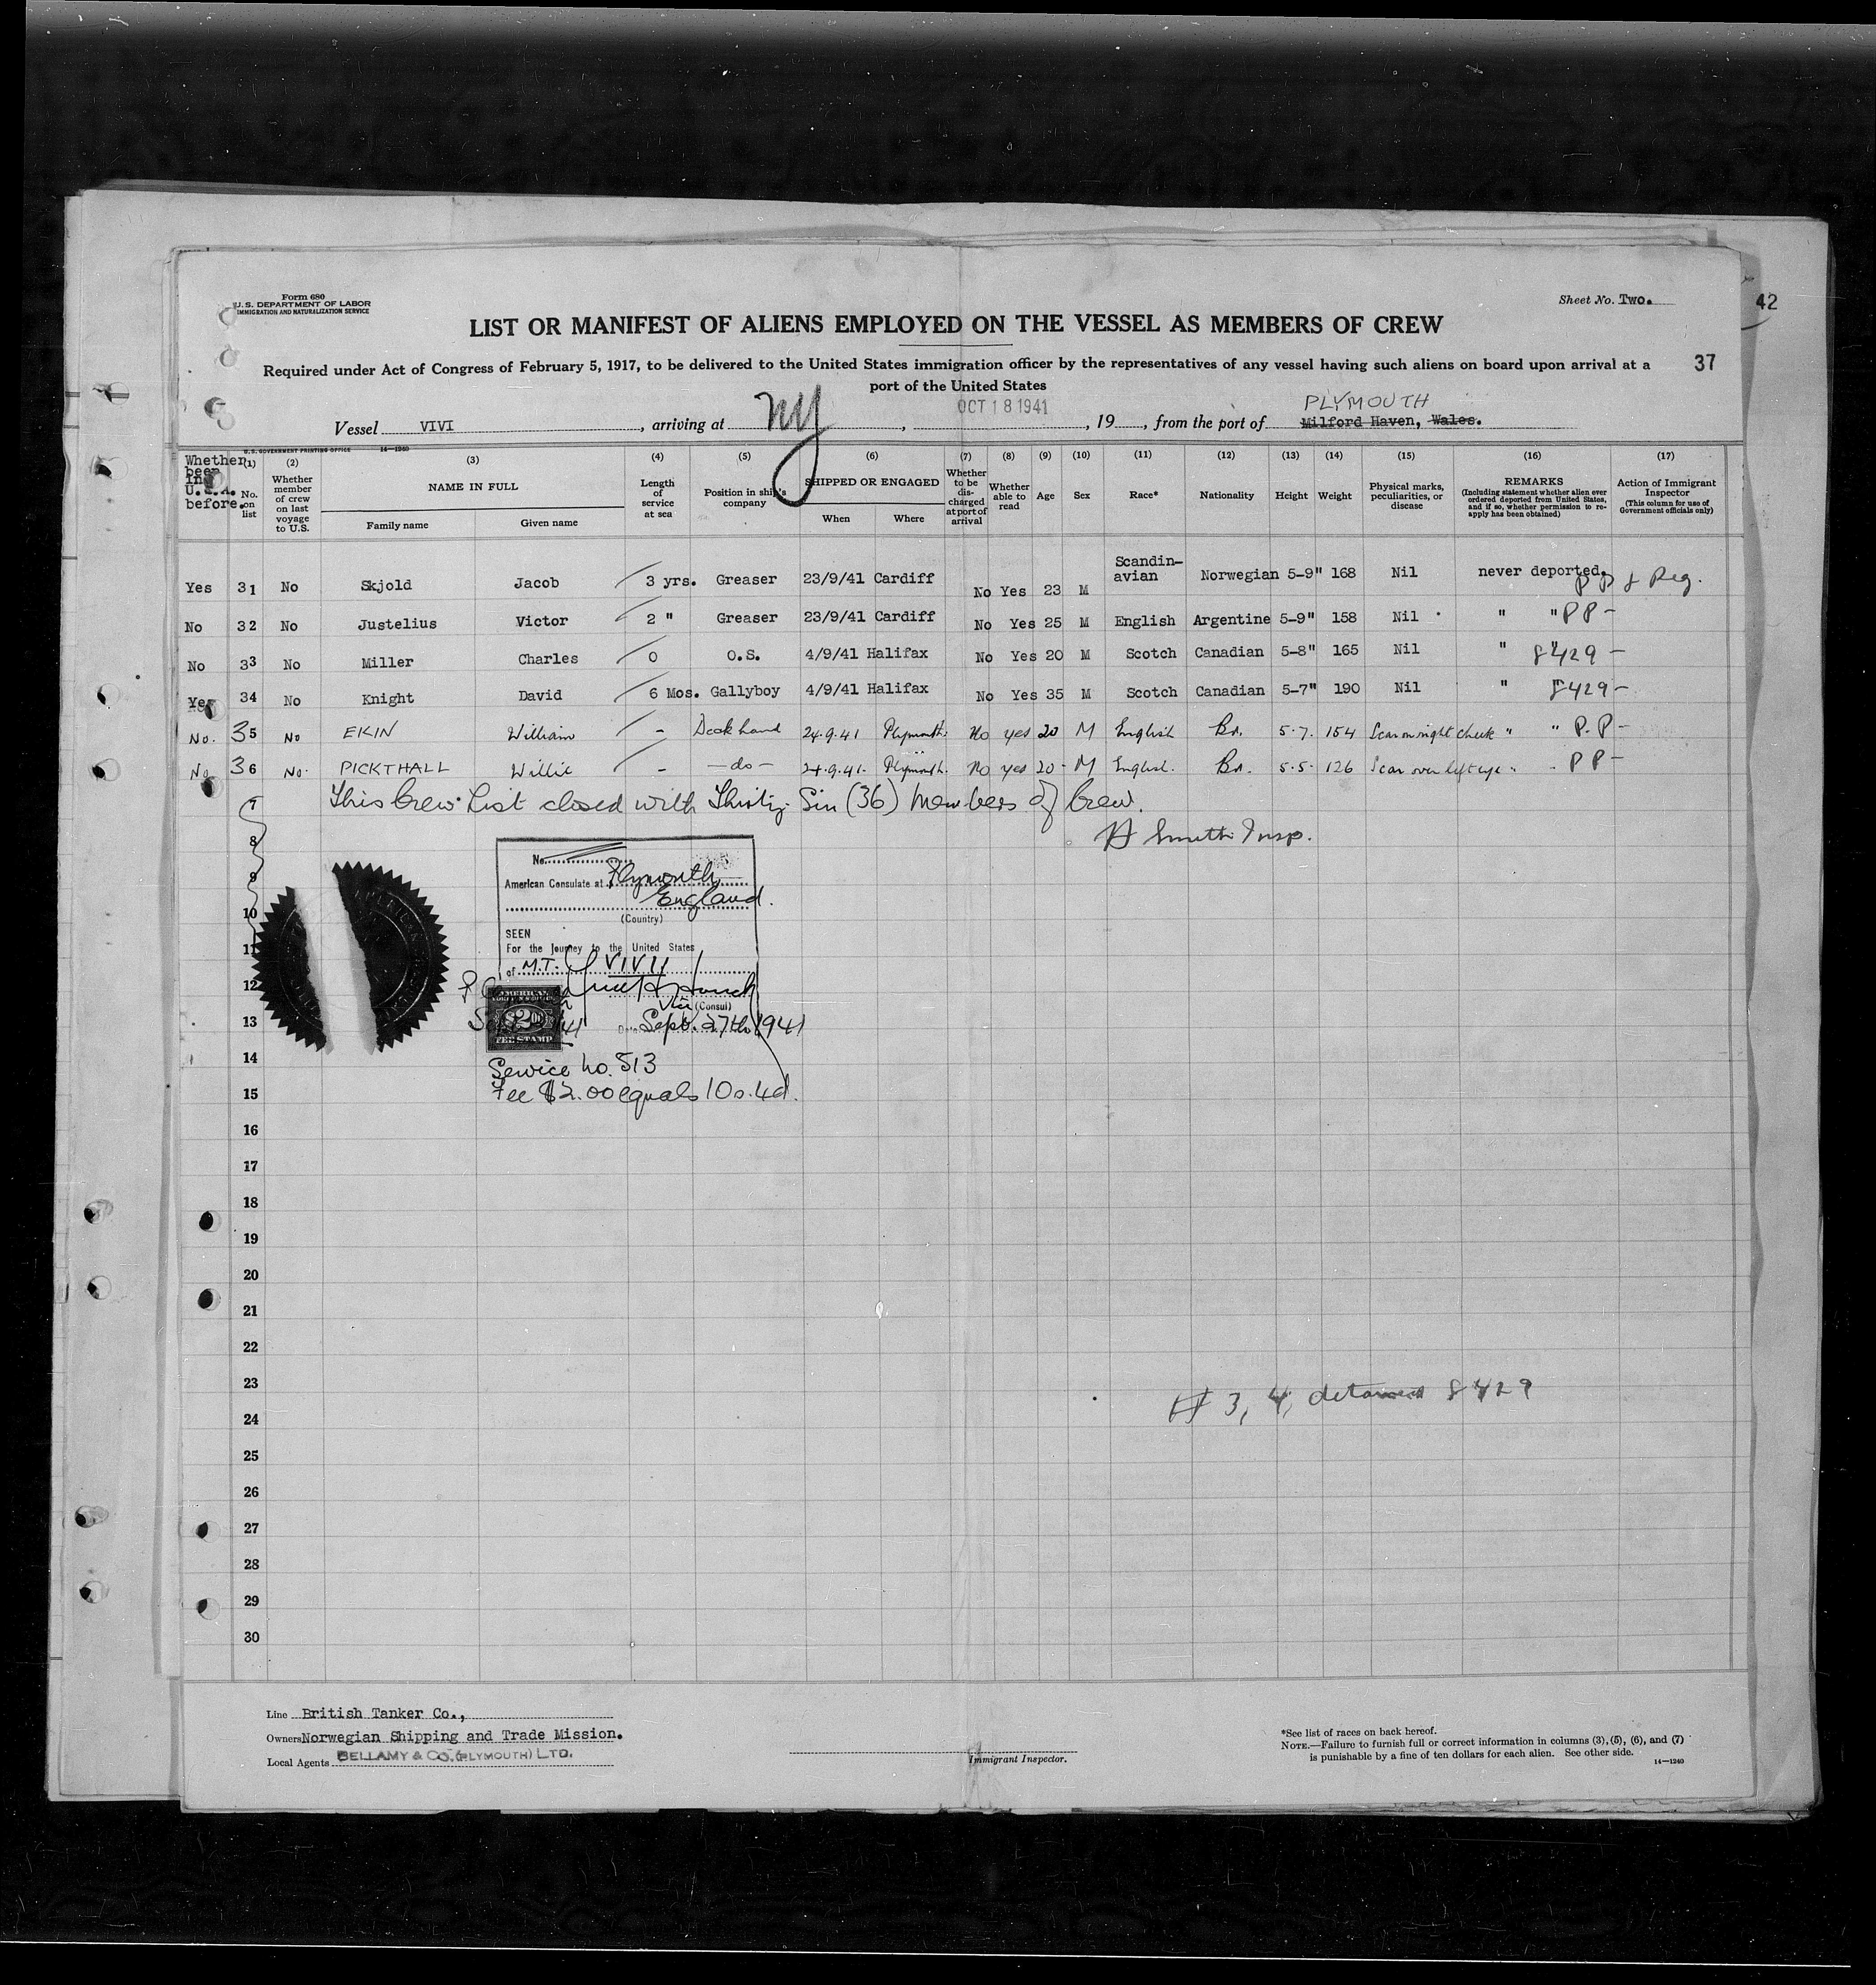 42
Form 680
U. S. DEPARTMENT OF LABOR
IMMIGRATION AND NATURALIZATION SERVICE
Sheet No. Two.
LIST OR MANIFEST OF ALIENS EMPLOYED ON THE VESSEL AS MEMBERS OF CREW
Required under Act of Congress of February 5, 1917, to be delivered to the United States immigration officer by the representatives of any vessel having such aliens on board upon arrival at a
port of the United States
37
OCT 18 1941
PLYMOUTH
Vessel VIVI, arriving at NY, , 19 , from the port of Milford Haven, Wales.
U. S. GOVERNMENT PRINTING OFFICE 14—1240
Whether been in U.S.A. before. (1) No. on list (2) Whether member of crew on last voyage to U.S. (3) NAME IN FULL Family name Given name (4) Length of service at sea (5) Position in ship's company (6) SHIPPED OR ENGAGED When Where (7) Whether to be discharged at port of arrival (8) Whether able to read (9) Age (10) Sex (11) Race* (12) Nationality (13) Height (14) Weight (15) Physical marks, peculiarities, or disease (16) REMARKS (Including statement whether alien ever ordered deported from United States, and if so, whether permission to re-apply has been obtained) (17) Action of Immigrant Inspector (This column for use of Government officials only)
Yes 31 No Skjold Jacob 3 yrs. Greaser 23/9/41 Cardiff No Yes 23 M Scandin-avian Norwegian 5-9" 168 Nil never deported. PP & Reg.
No 32 No Justelius Victor 2 " Greaser 23/9/41 Cardiff No Yes 25 M English Argentine 5-9" 158 Nil " " PP –
No 33 No Miller Charles 0 O.S. 4/9/41 Halifax No Yes 20 M Scotch Canadian 5-8" 165 Nil " " 8429 –
Yes 34 No Knight David 6 Mos. Gallyboy 4/9/41 Halifax No Yes 35 M Scotch Canadian 5-7" 190 Nil " " 8429 –
No. 35 No EKIN William – Deck hand 24.9.41 Plymouth. No yes 20 M English Br. 5.7. 154 Scar on right cheek " " P.P –
No 36 No. PICKTHALL Willie – – do – 24.9.41. Plymouth. No yes 20 - M English. Br. 5.5. 126 Scar over left eye " " PP –
This Crew List closed with Thirty Six (36) Members of Crew.
H Smith Insp.
7
8
9
10
11
12
13
14
15
16
17
18
19
20
21
22
23
24
25
26
27
28
29
30
No.
American Consulate at Plymouth
England.
(Country)
SEEN
For the journey to the United States
of M.T. "VIVI"
Vice (Consul)
Date Sept. 27th 1941
AMERICAN
$2.00
FEE STAMP
Service No. 513
Fee $2.00 equals 10s.4d.
# 3, 4, detained 8429
Line British Tanker Co.,
Owners Norwegian Shipping and Trade Mission.
Local Agents BELLAMY & CO. (PLYMOUTH) LTD.
Immigrant Inspector.
*See list of races on back hereof.
NOTE.—Failure to furnish full or correct information in columns (3), (5), (6), and (7)
is punishable by a fine of ten dollars for each alien. See other side.
14—1240